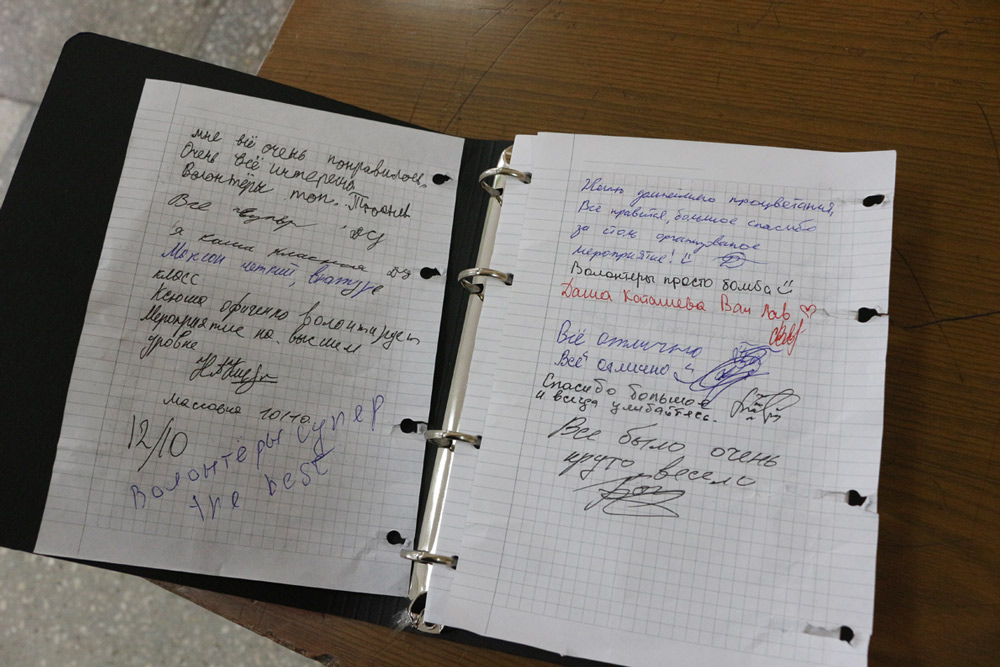 мне всё очень понравилось,
Очень всё интересна
Волонтёры топ.
Все супер
я каша классная
Максон чёткий,
класс
Ксюша офигенно волонтирует
Мероприятие на высшем
уровне
Масловня 10/10
12/10
Волонтёры супер
the best
процветания,
Всё нравится, большое спасибо
за столь организованое
мероприятие!
Волонтеры просто бомба
Даша Капашева Ван Лав ♡
Всё отлично
Всё отлично
Спасибо большое
и всегда улибайтесь.
Все было очень
круто весело